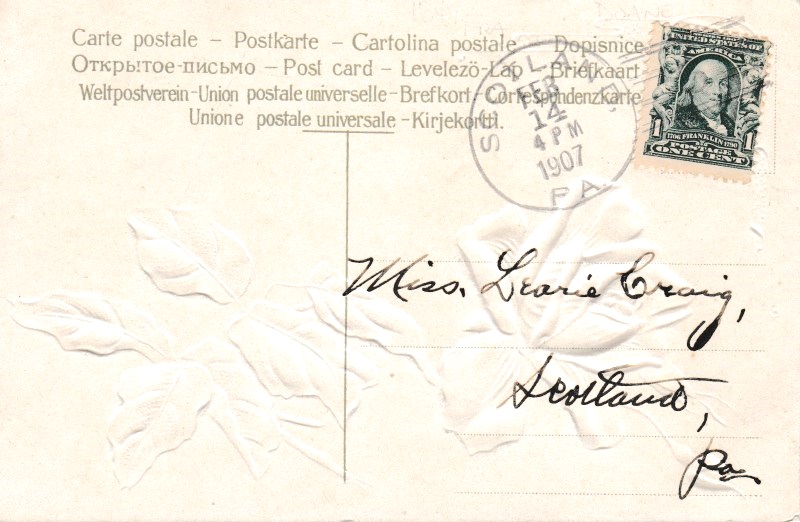 Carte postale – Postkarte – Cartolina postale – Dopisnice
Открытое-письмо – Post card – Levelező-Lap – Briefkaart
Weltpostverein-Union postale universelle – Brefkort – Correspondenzkarte
Unione postale universale – Kirjekortti.
SCOTLAND,
FEB
14
4 PM
1907
PA.
UNITED STATES OF
AMERICA
1 1
1706 FRANKLIN 1790
POSTAGE
ONE CENT
Miss. Learie Craig,
Scotland,
Pa